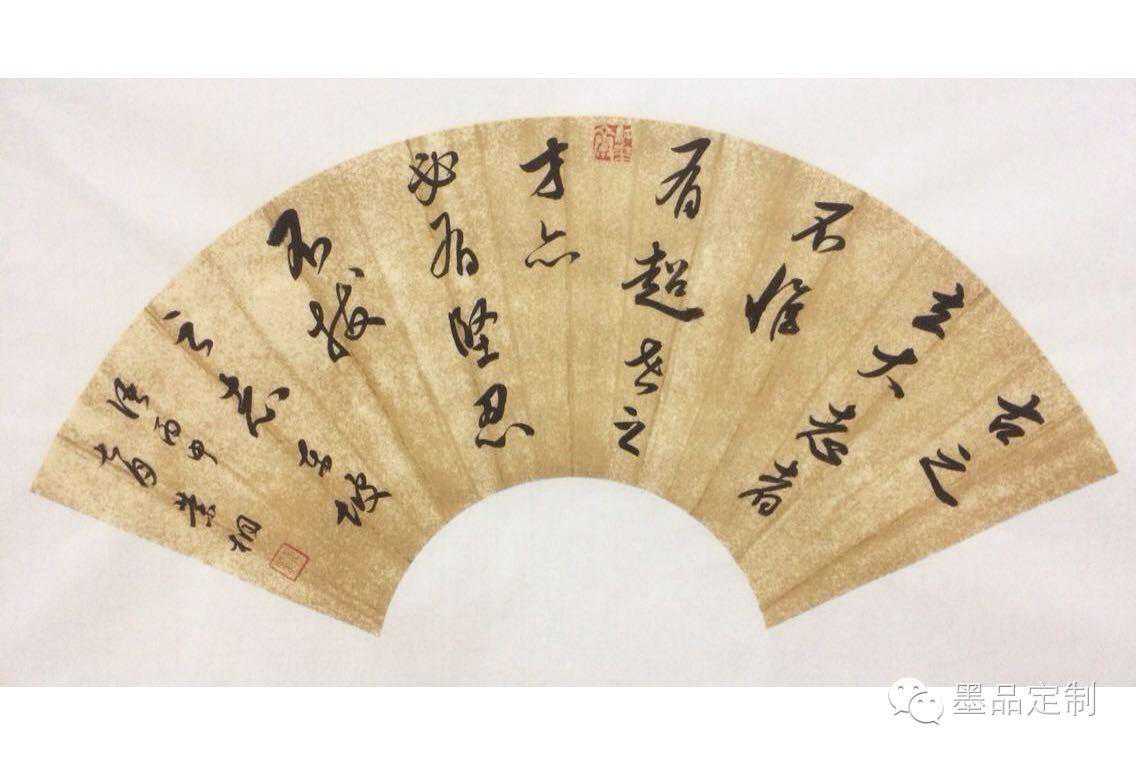 古之
立大事者
不惟
有超世之
才亦
必有坚忍
不拔
之志东坡
丙申
墨品定制